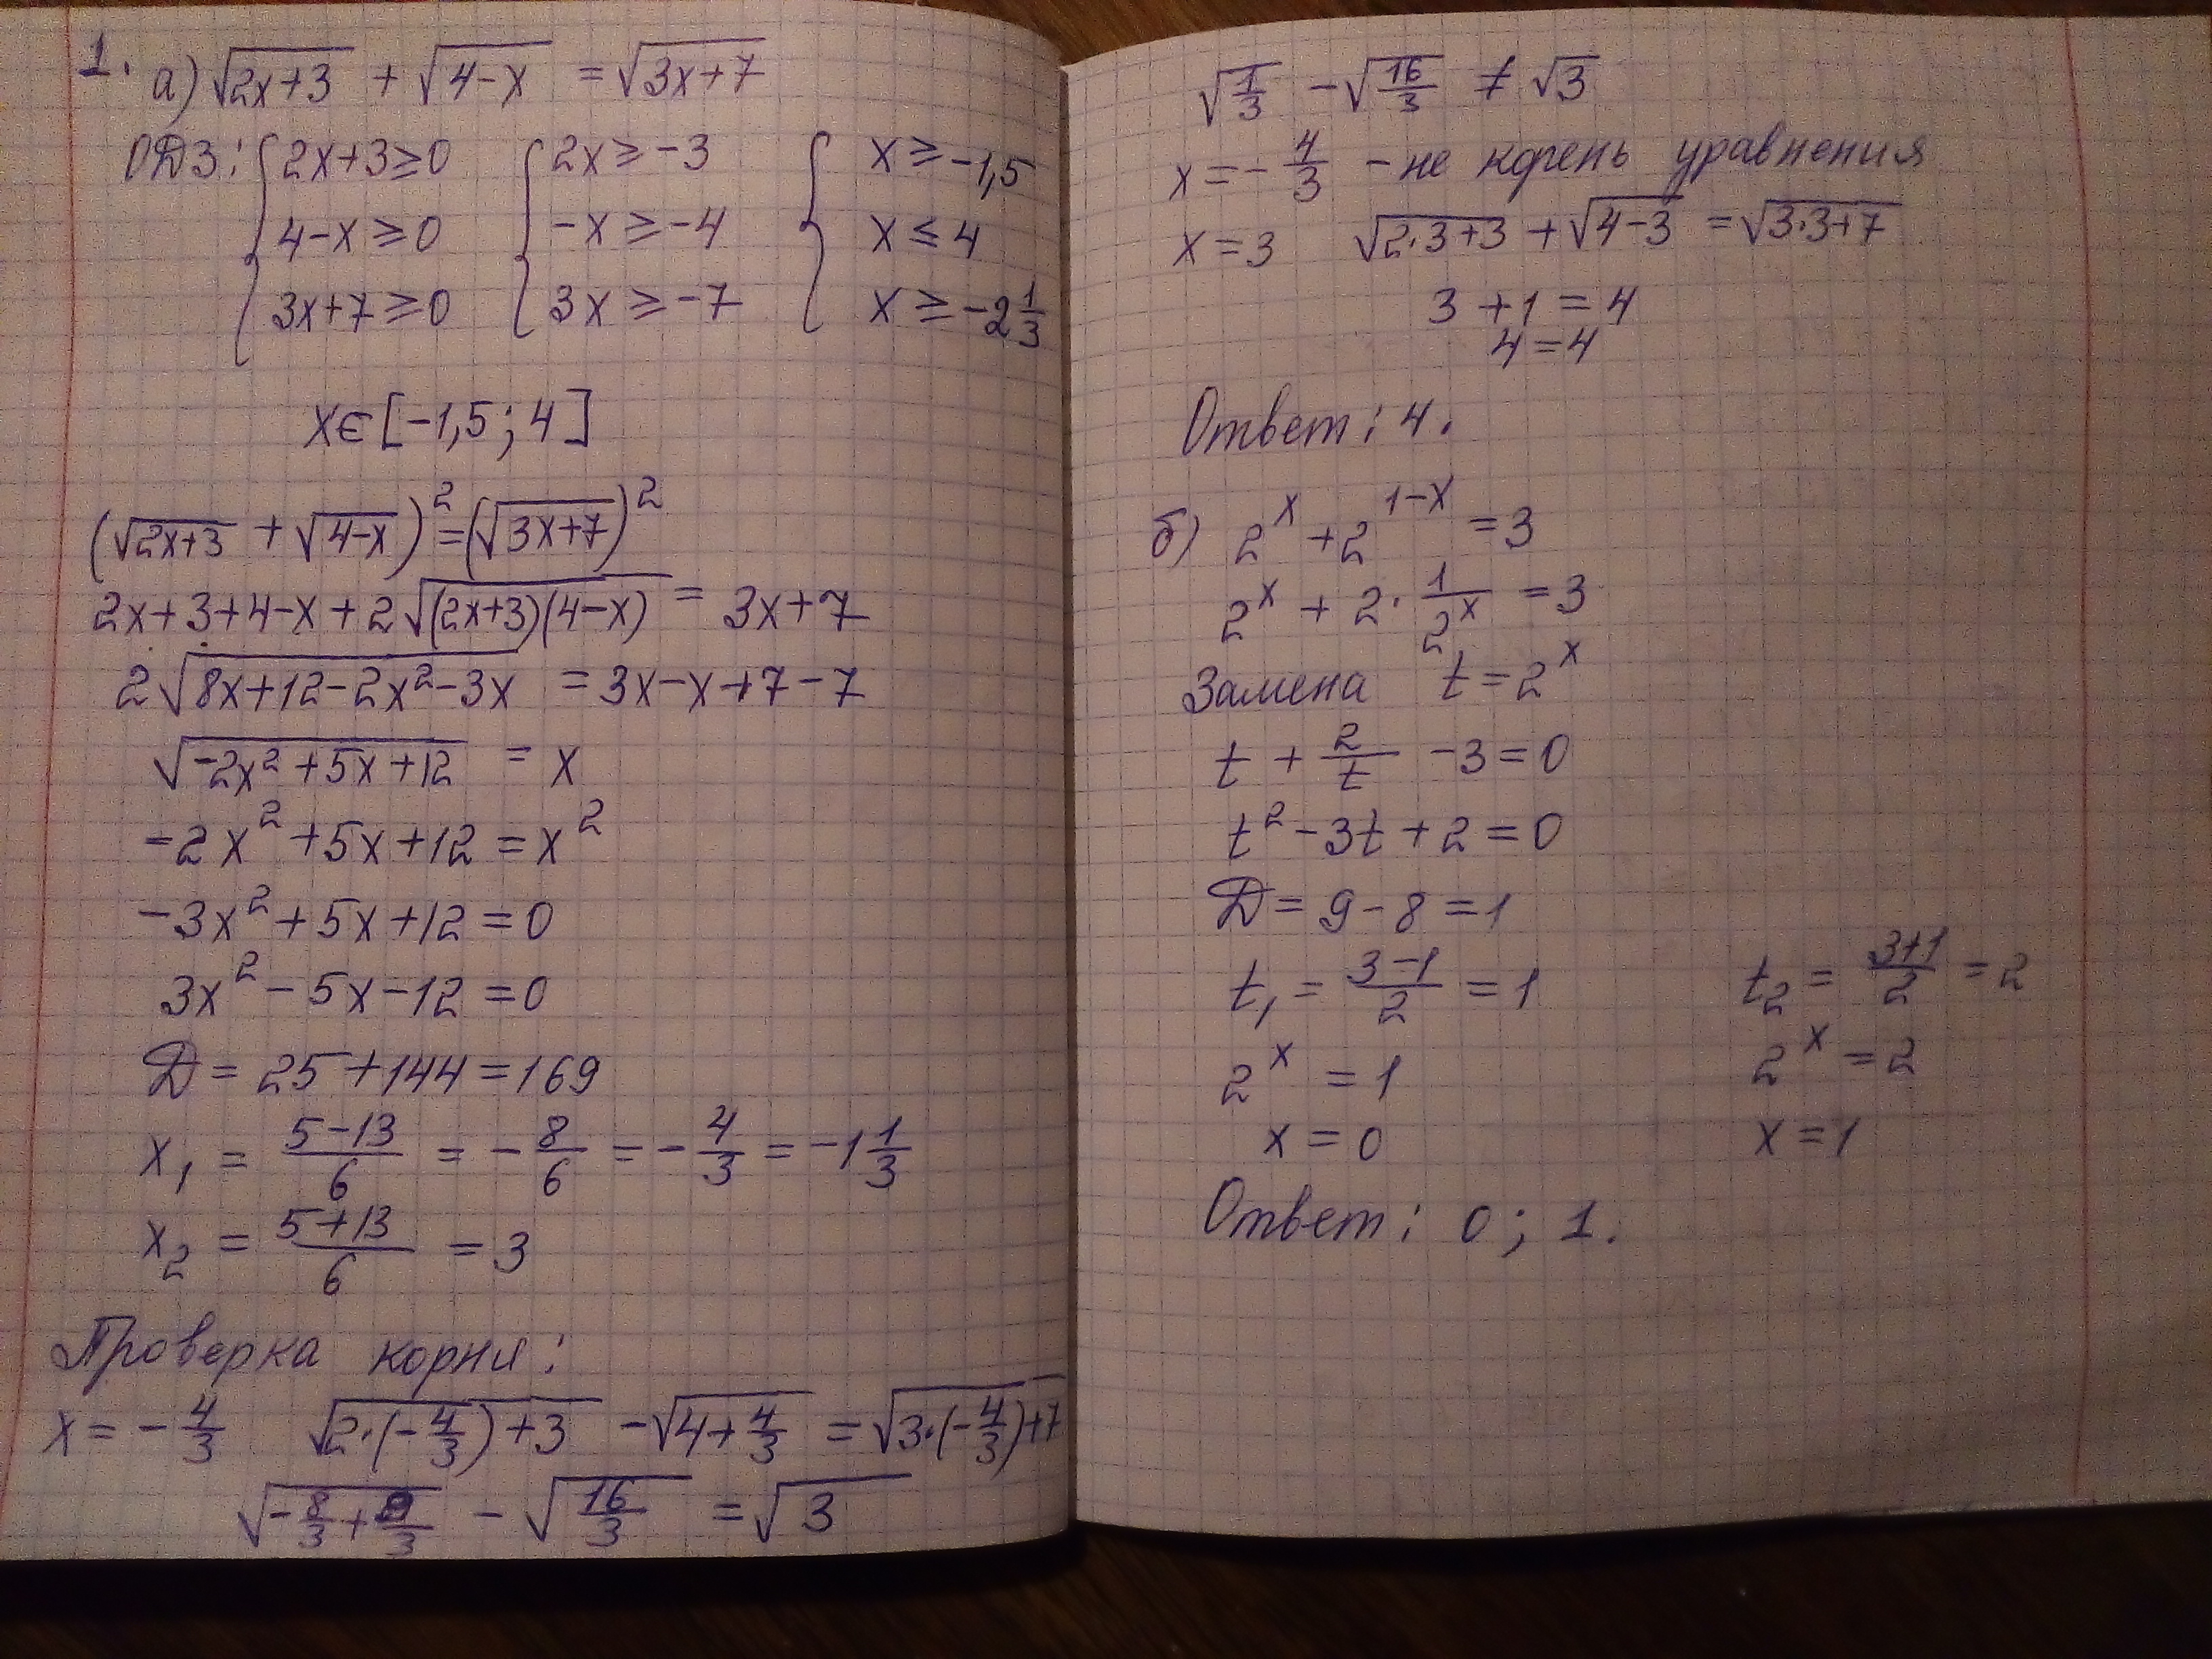 1. а) √(2x+3) + √(4-x) = √(3x+7)
ОДЗ: { 2x+3≥0 { 2x ≥ -3 { x ≥ -1,5
4-x ≥ 0 -x ≥ -4 x ≤ 4
3x+7 ≥ 0 3x ≥ -7 x ≥ -2 1/3
x∈[-1,5; 4]
(√(2x+3) + √(4-x))² = (√(3x+7))²
2x+3+4-x+2√((2x+3)(4-x)) = 3x+7
2√(8x+12-2x²-3x) = 3x-x+7-7
√(-2x²+5x+12) = x
-2x²+5x+12 = x²
-3x²+5x+12 = 0
3x²-5x-12 = 0
D = 25+144 = 169
x₁ = (5-13)/6 = -8/6 = -4/3 = -1 1/3
x₂ = (5+13)/6 = 3
Проверка корни:
x = -4/3 √(2·(-4/3)+3) - √(4+4/3) = √(3·(-4/3)+7)
√(-8/3+9/3) - √(16/3) = √3
√(1/3) - √(16/3) ≠ √3
x = -4/3 - не корень уравнения
x = 3 √(2·3+3) + √(4-3) = √(3·3+7)
3 + 1 = 4
4 = 4
Ответ: 4.
б) 2^x + 2^(1-x) = 3
2^x + 2·1/2^x = 3
Замена t = 2^x
t + 2/t - 3 = 0
t² - 3t + 2 = 0
D = 9 - 8 = 1
t₁ = (3-1)/2 = 1 t₂ = (3+1)/2 = 2
2^x = 1 2^x = 2
x = 0 x = 1
Ответ: 0; 1.